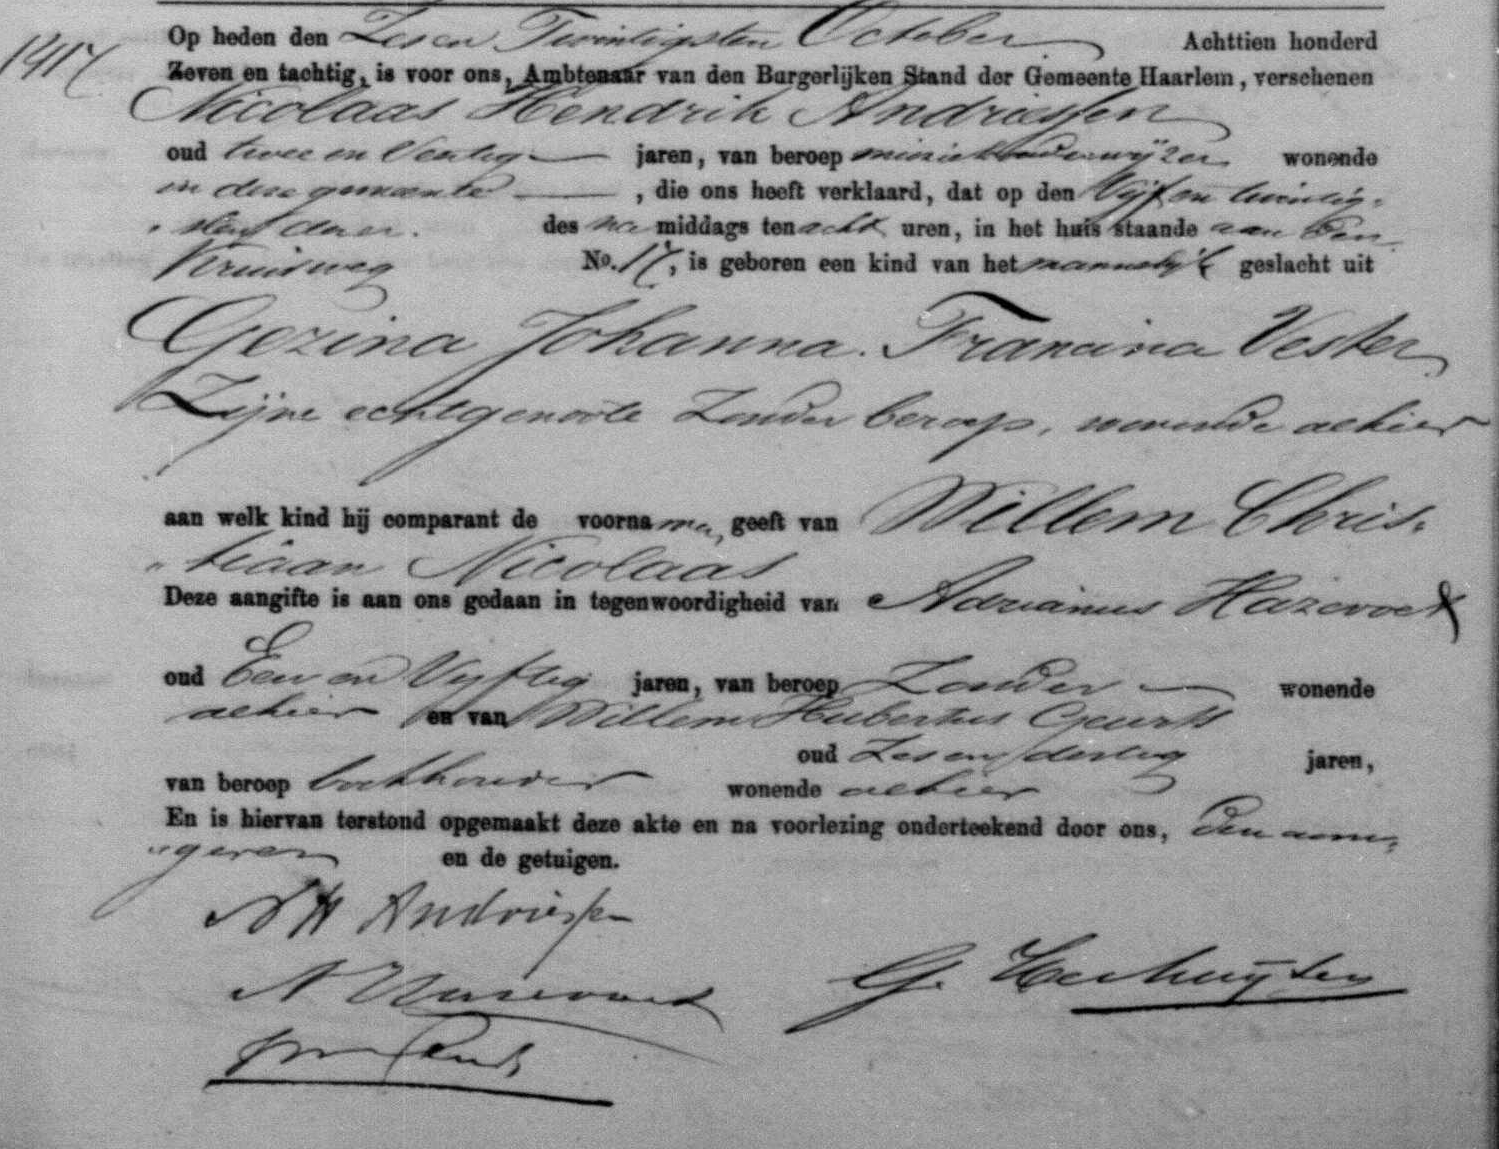 1417
Op heden den Zes en Twintigsten October Achttien honderd
Zeven en tachtig, is voor ons, Ambtenaar van den Burgerlijken Stand der Gemeente Haarlem, verschenen
Nicolaas Hendrik Andriessen
oud twee en Veertig jaren, van beroep muziekonderwijzer wonende
in deze gemeente, die ons heeft verklaard, dat op den Vijf en twintig-
sten dezer. des na middags ten acht uren, in het huis staande aan den
Kruisweg No. 17, is geboren een kind van het mannelijk geslacht uit
Gezina Johanna Francina Vester
Zijne echtgenoote Zonder beroep, wonende alhier
aan welk kind hij comparant de voornamen geeft van Willem Chris-
tiaan Nicolaas
Deze aangifte is aan ons gedaan in tegenwoordigheid van Adrianus Hazevoet
oud Een en Vyftig jaren, van beroep Zonder wonende
alhier en van Willem Hubertus Geurts
oud Zes en dertig jaren,
van beroep boekhouder wonende alhier
En is hiervan terstond opgemaakt deze akte en na voorlezing onderteekend door ons, den aan-
gever en de getuigen.
NH Andriessen
A Hazevoet
G.